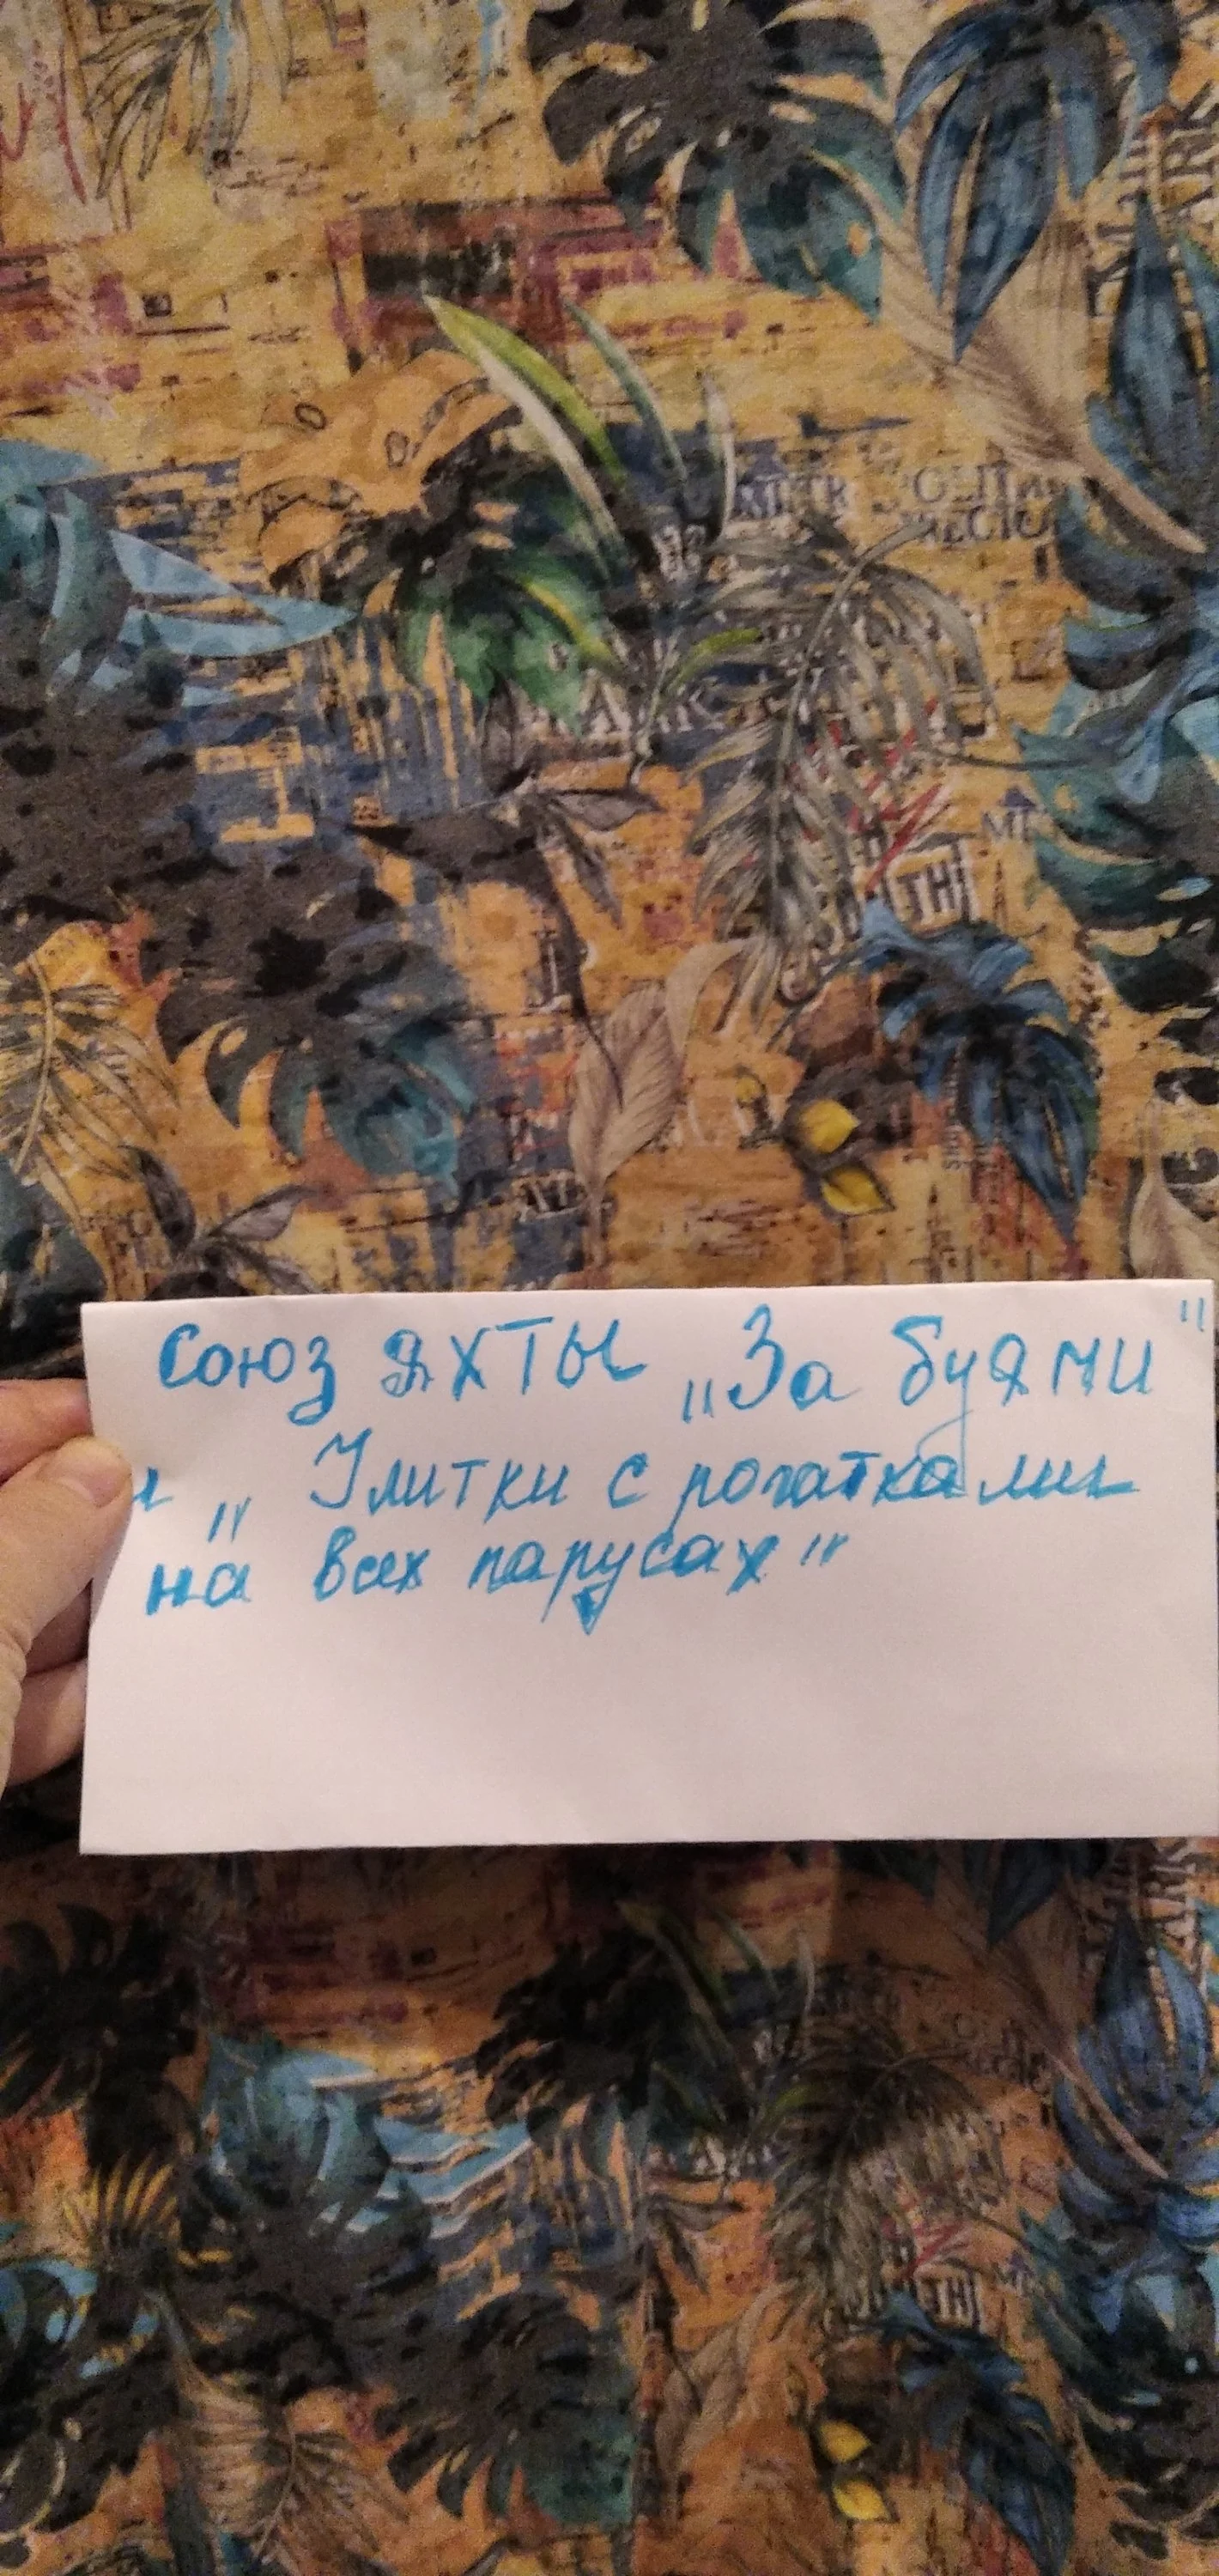 Союз яхты „За буями"
и „Улитки с рогатками
на всех парусах"